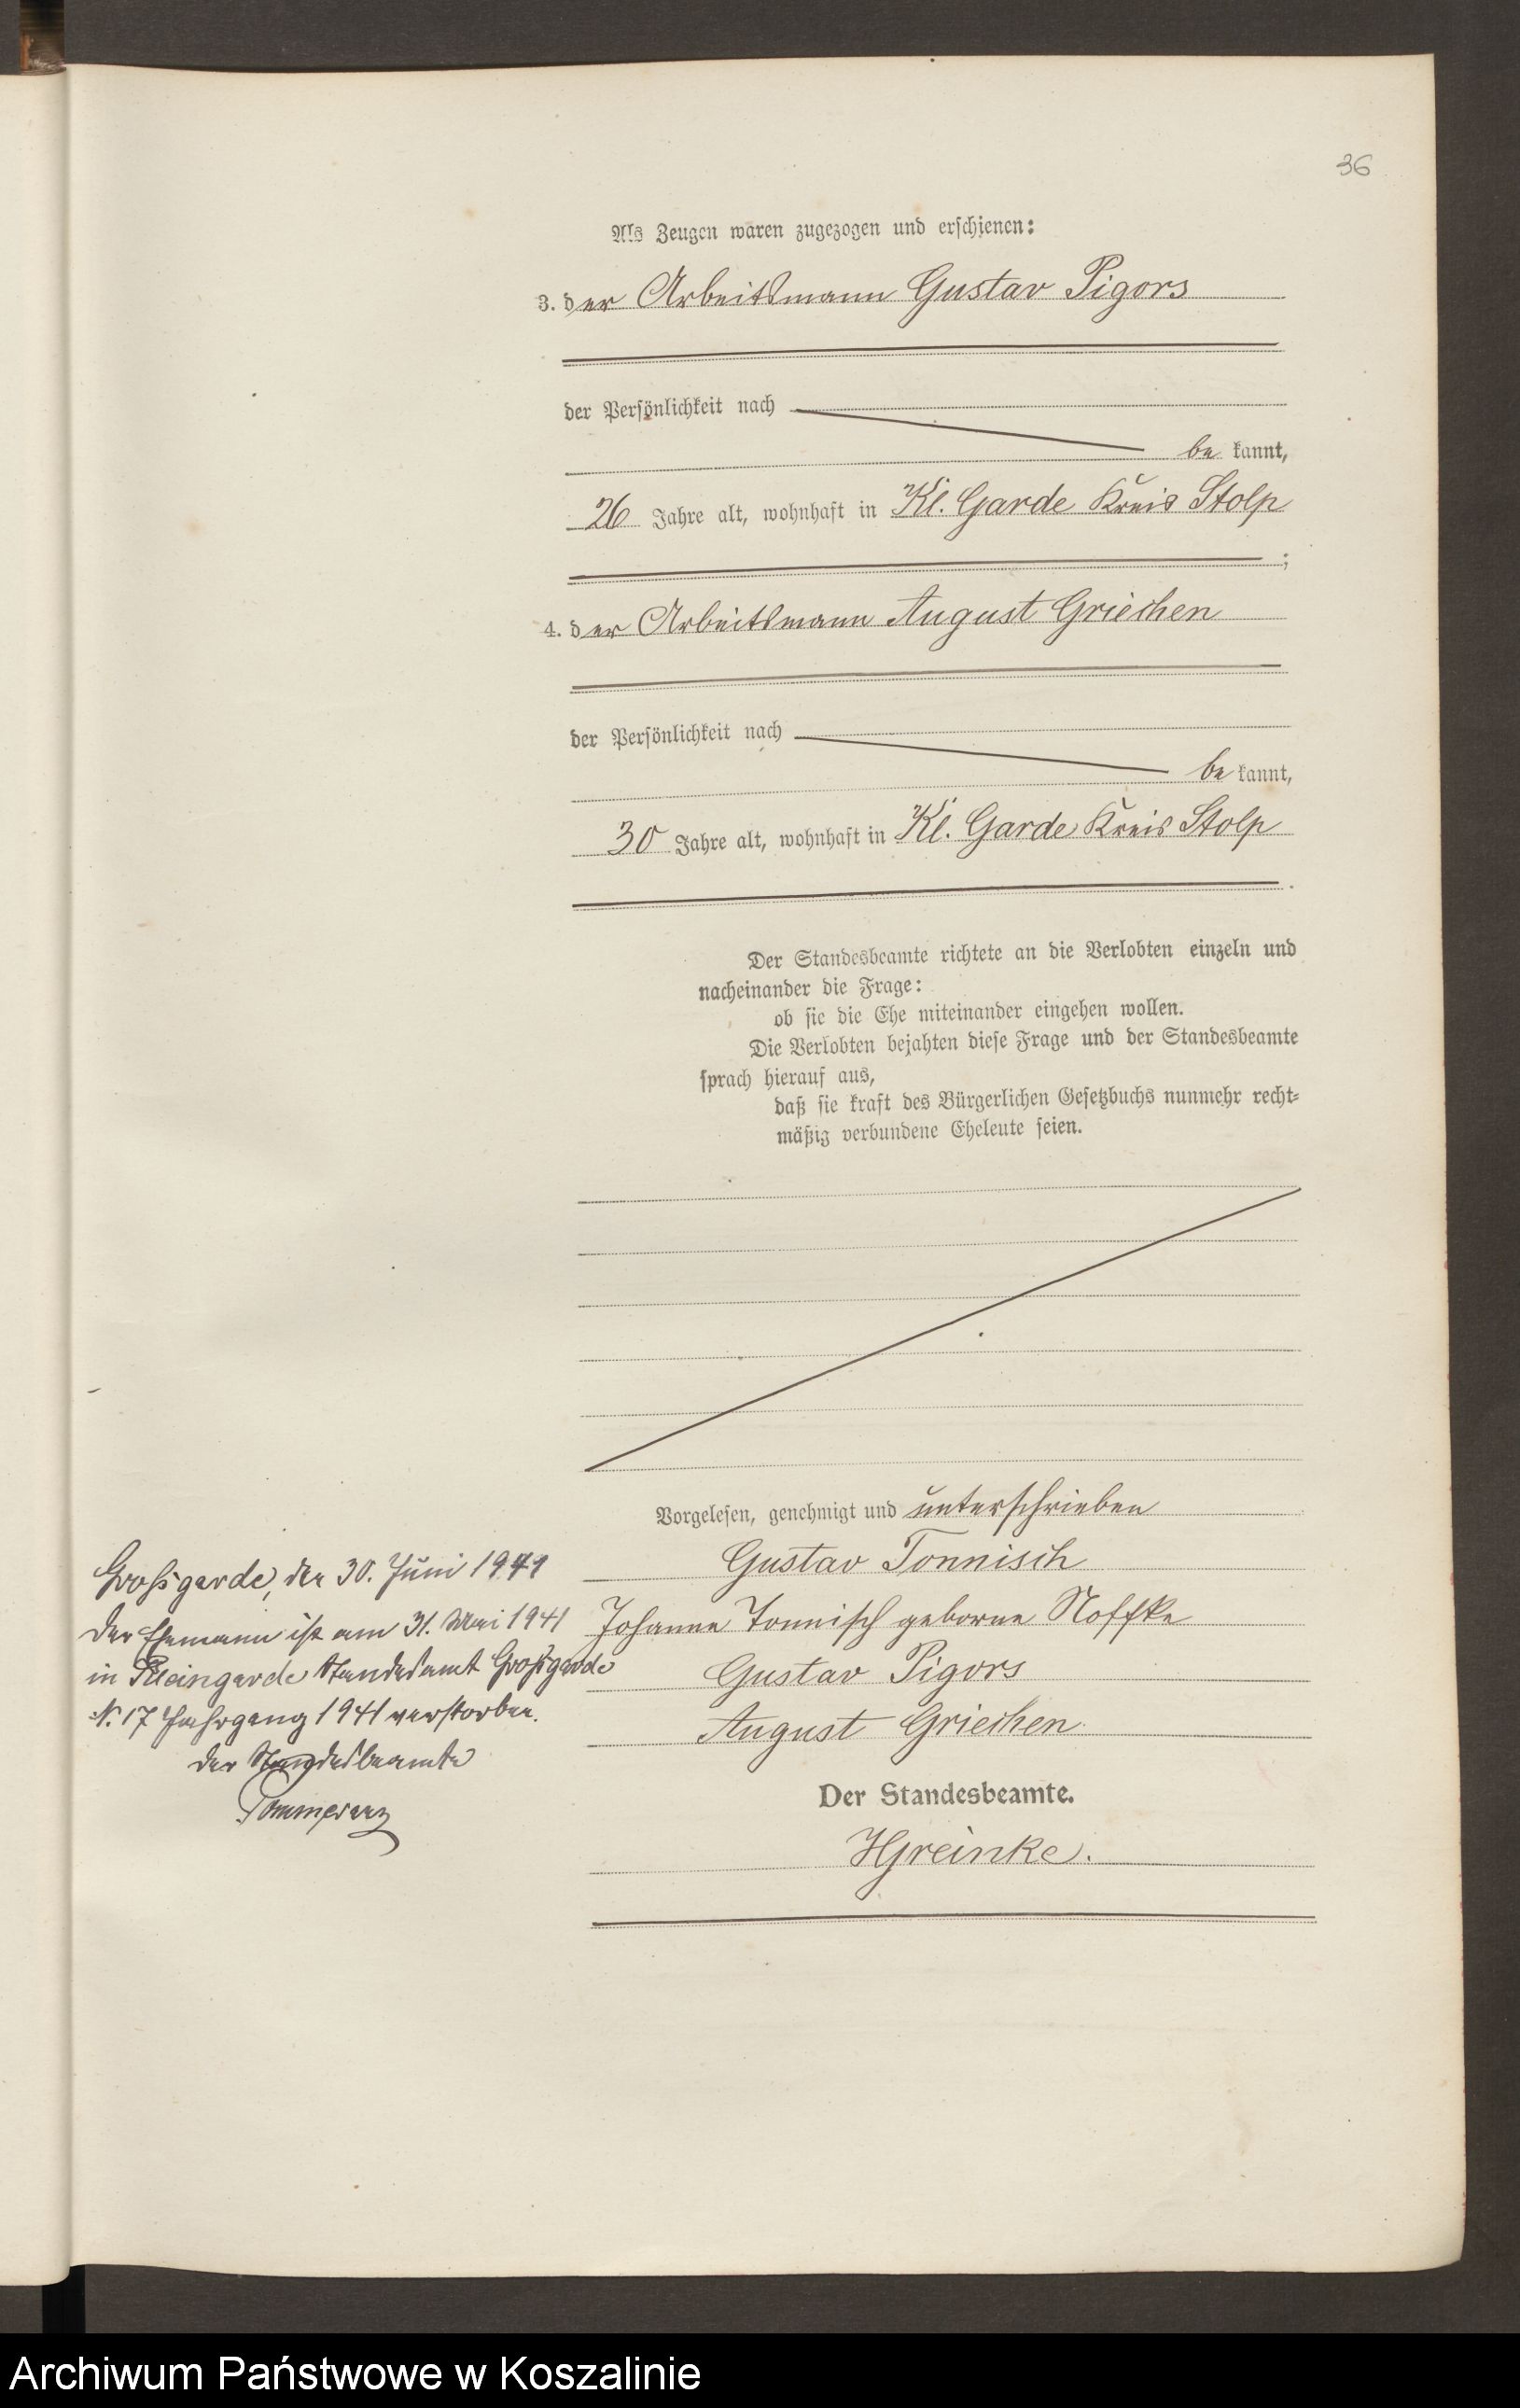 36
Als Zeugen waren zugezogen und erschienen:
3. der Arbeitsmann Gustav Pigors
der Persönlichkeit nach
be kannt,
26 Jahre alt, wohnhaft in Kl. Garde Kreis Stolp
;
4. der Arbeitsmann August Griechen
der Persönlichkeit nach
be kannt,
30 Jahre alt, wohnhaft in Kl. Garde Kreis Stolp
.
Der Standesbeamte richtete an die Verlobten einzeln und
nacheinander die Frage:
ob sie die Ehe miteinander eingehen wollen.
Die Verlobten bejahten diese Frage und der Standesbeamte
sprach hierauf aus,
daß sie kraft des Bürgerlichen Gesetzbuchs nunmehr recht-
mäßig verbundene Eheleute seien.
Vorgelesen, genehmigt und unterschrieben
Gustav Tonnisch
Johanne Tonnisch geborne Noffke
Gustav Pigors
August Griechen
Der Standesbeamte.
HGreinke.
Großgarde, den 30. Juni 1941
Der Ehemann ist am 31. Mai 1941
in Kleingarde Standesamt Großgarde
N. 17 Jahrgang 1941 verstorben.
Der Standesbeamte
Pommerenz
Archiwum Państwowe w Koszalinie